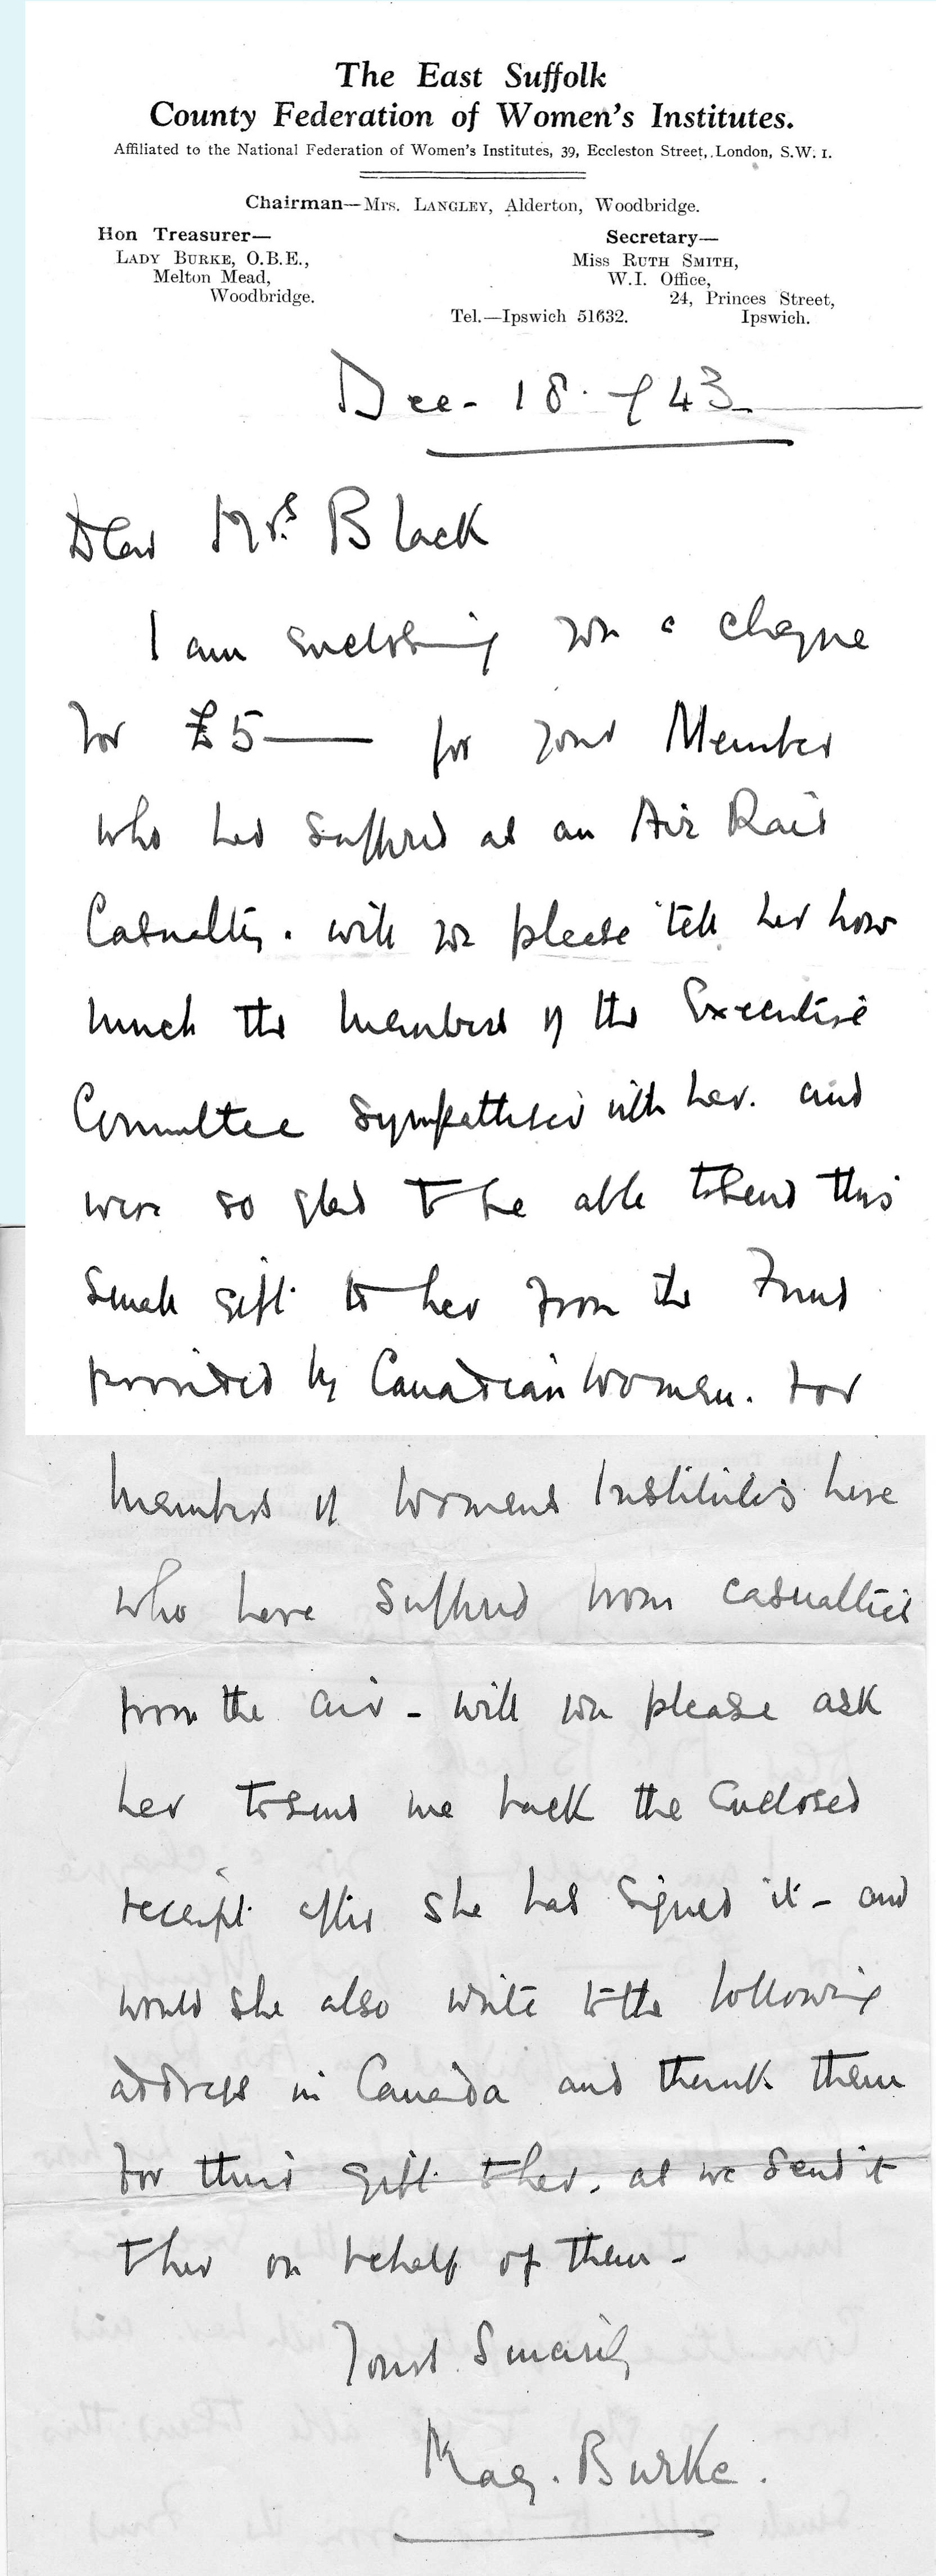 The East Suffolk
County Federation of Women's Institutes.
Affiliated to the National Federation of Women's Institutes, 39, Eccleston Street, London, S.W. 1.
Chairman—Mrs. LANGLEY, Alderton, Woodbridge.
Hon Treasurer—
LADY BURKE, O.B.E.,
Melton Mead,
Woodbridge.
Secretary—
Miss RUTH SMITH,
W.I. Office,
24, Princes Street,
Tel.—Ipswich 51632. Ipswich.
Dec- 18. 943
Dear Mrs. Black
I am enclosing you a cheque
for £5— for your Member
who has suffered as an Air Raid
Casualty. will you please tell her how
much the members of the Executive
Committee sympathised with her. and
were so glad to be able to send this
small gift to her from the Fund
provided by Canadian Women. for
members of Womens Institutes here
who have suffered from casualties
from the air - will you please ask
her to send me back the enclosed
receipt after she has signed it - and
would she also write to the following
address in Canada and thank them
for their gift to her, as we send it
to her on behalf of them -
Yours Sincerely
May. Burke.